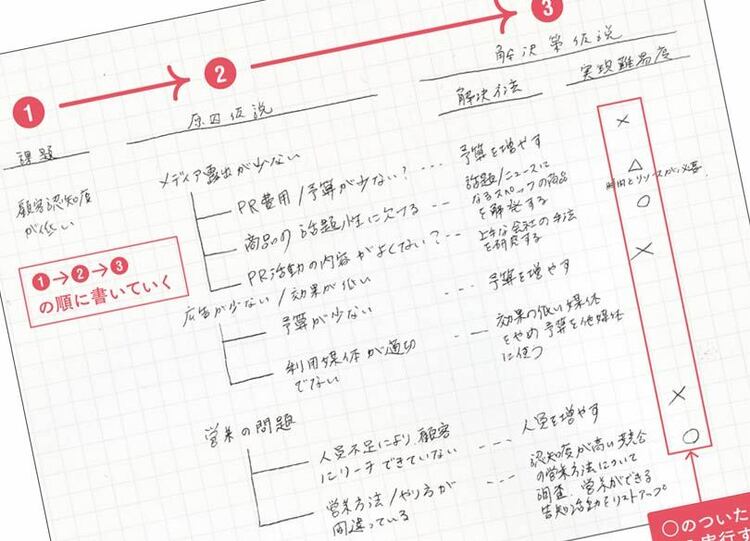 1
2
3
課題
原因仮説
解決策仮説
解決方法
実現難易度
顧客認知度
が低い
1→2→3
の順に書いていく
メディア露出が少ない
PR費用/予算が少ない? ・・・ 予算を増やす
×
商品の話題性に欠ける ・・ 話題/ニュースに
なるスペックの商品
を開発する
△
時間とリソースが必要
PR活動の内容がよくない? ・・ 上手な会社の手法
を研究する
○
広告が少ない/効果が低い
予算が少ない ・・・ 予算を増やす
×
利用媒体が適切
でない
・・・ 効果の低い媒体
をやめ予算を他媒体
に使う
営業の問題
人員不足により顧客
にリーチできていない
・・・ 人員を増やす
×
営業方法/やり方が
間違っている
・・・ 認知度が高い競合
の営業方法について
調査、営業ができる
告知活動をリストアップ
○
○のついた